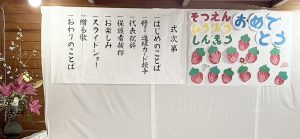 式次第
一はじめのことば
一修了進級カード授与
一代表挨拶
一保護者挨拶
一お楽しみ
一スライドショー
一贈る歌
一おわりのことば
そつえん
しゅうりょう
しんきゅう
おめで
とう